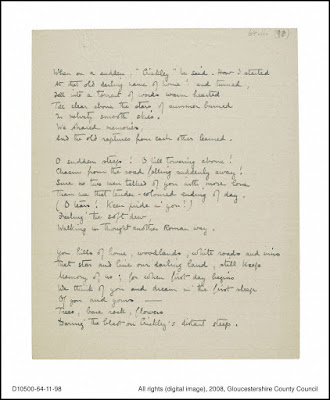 (98)
When on a sudden, "Crickley" he said. How I started
At that old darling name of home! and turned,
Fell into a torrent of words warm hearted
Till clear above the stars of summer burned
In velvety smooth skies.
We shared memories,
And the old raptures from each other learned.
O sudden steep! O hill towering above!
Chasm from the road falling suddenly away!
Sure no two men talked of you with more love
Than we that tender-coloured ending of day.
(O tears! Keen pride in you!)
Feeling the soft dew,
Walking in thought another Roman way.
You hills of home, woodlands, white roads and inns
That star and line our darling land, still keep
Memory of us; for when first day begins
We think of you and dream in the first sleep
Of you and yours —
Trees, bare rock, flowers
Daring the blast on Crickley's distant steep.
D10500-64-11-98
All rights (digital image), 2008, Gloucestershire County Council